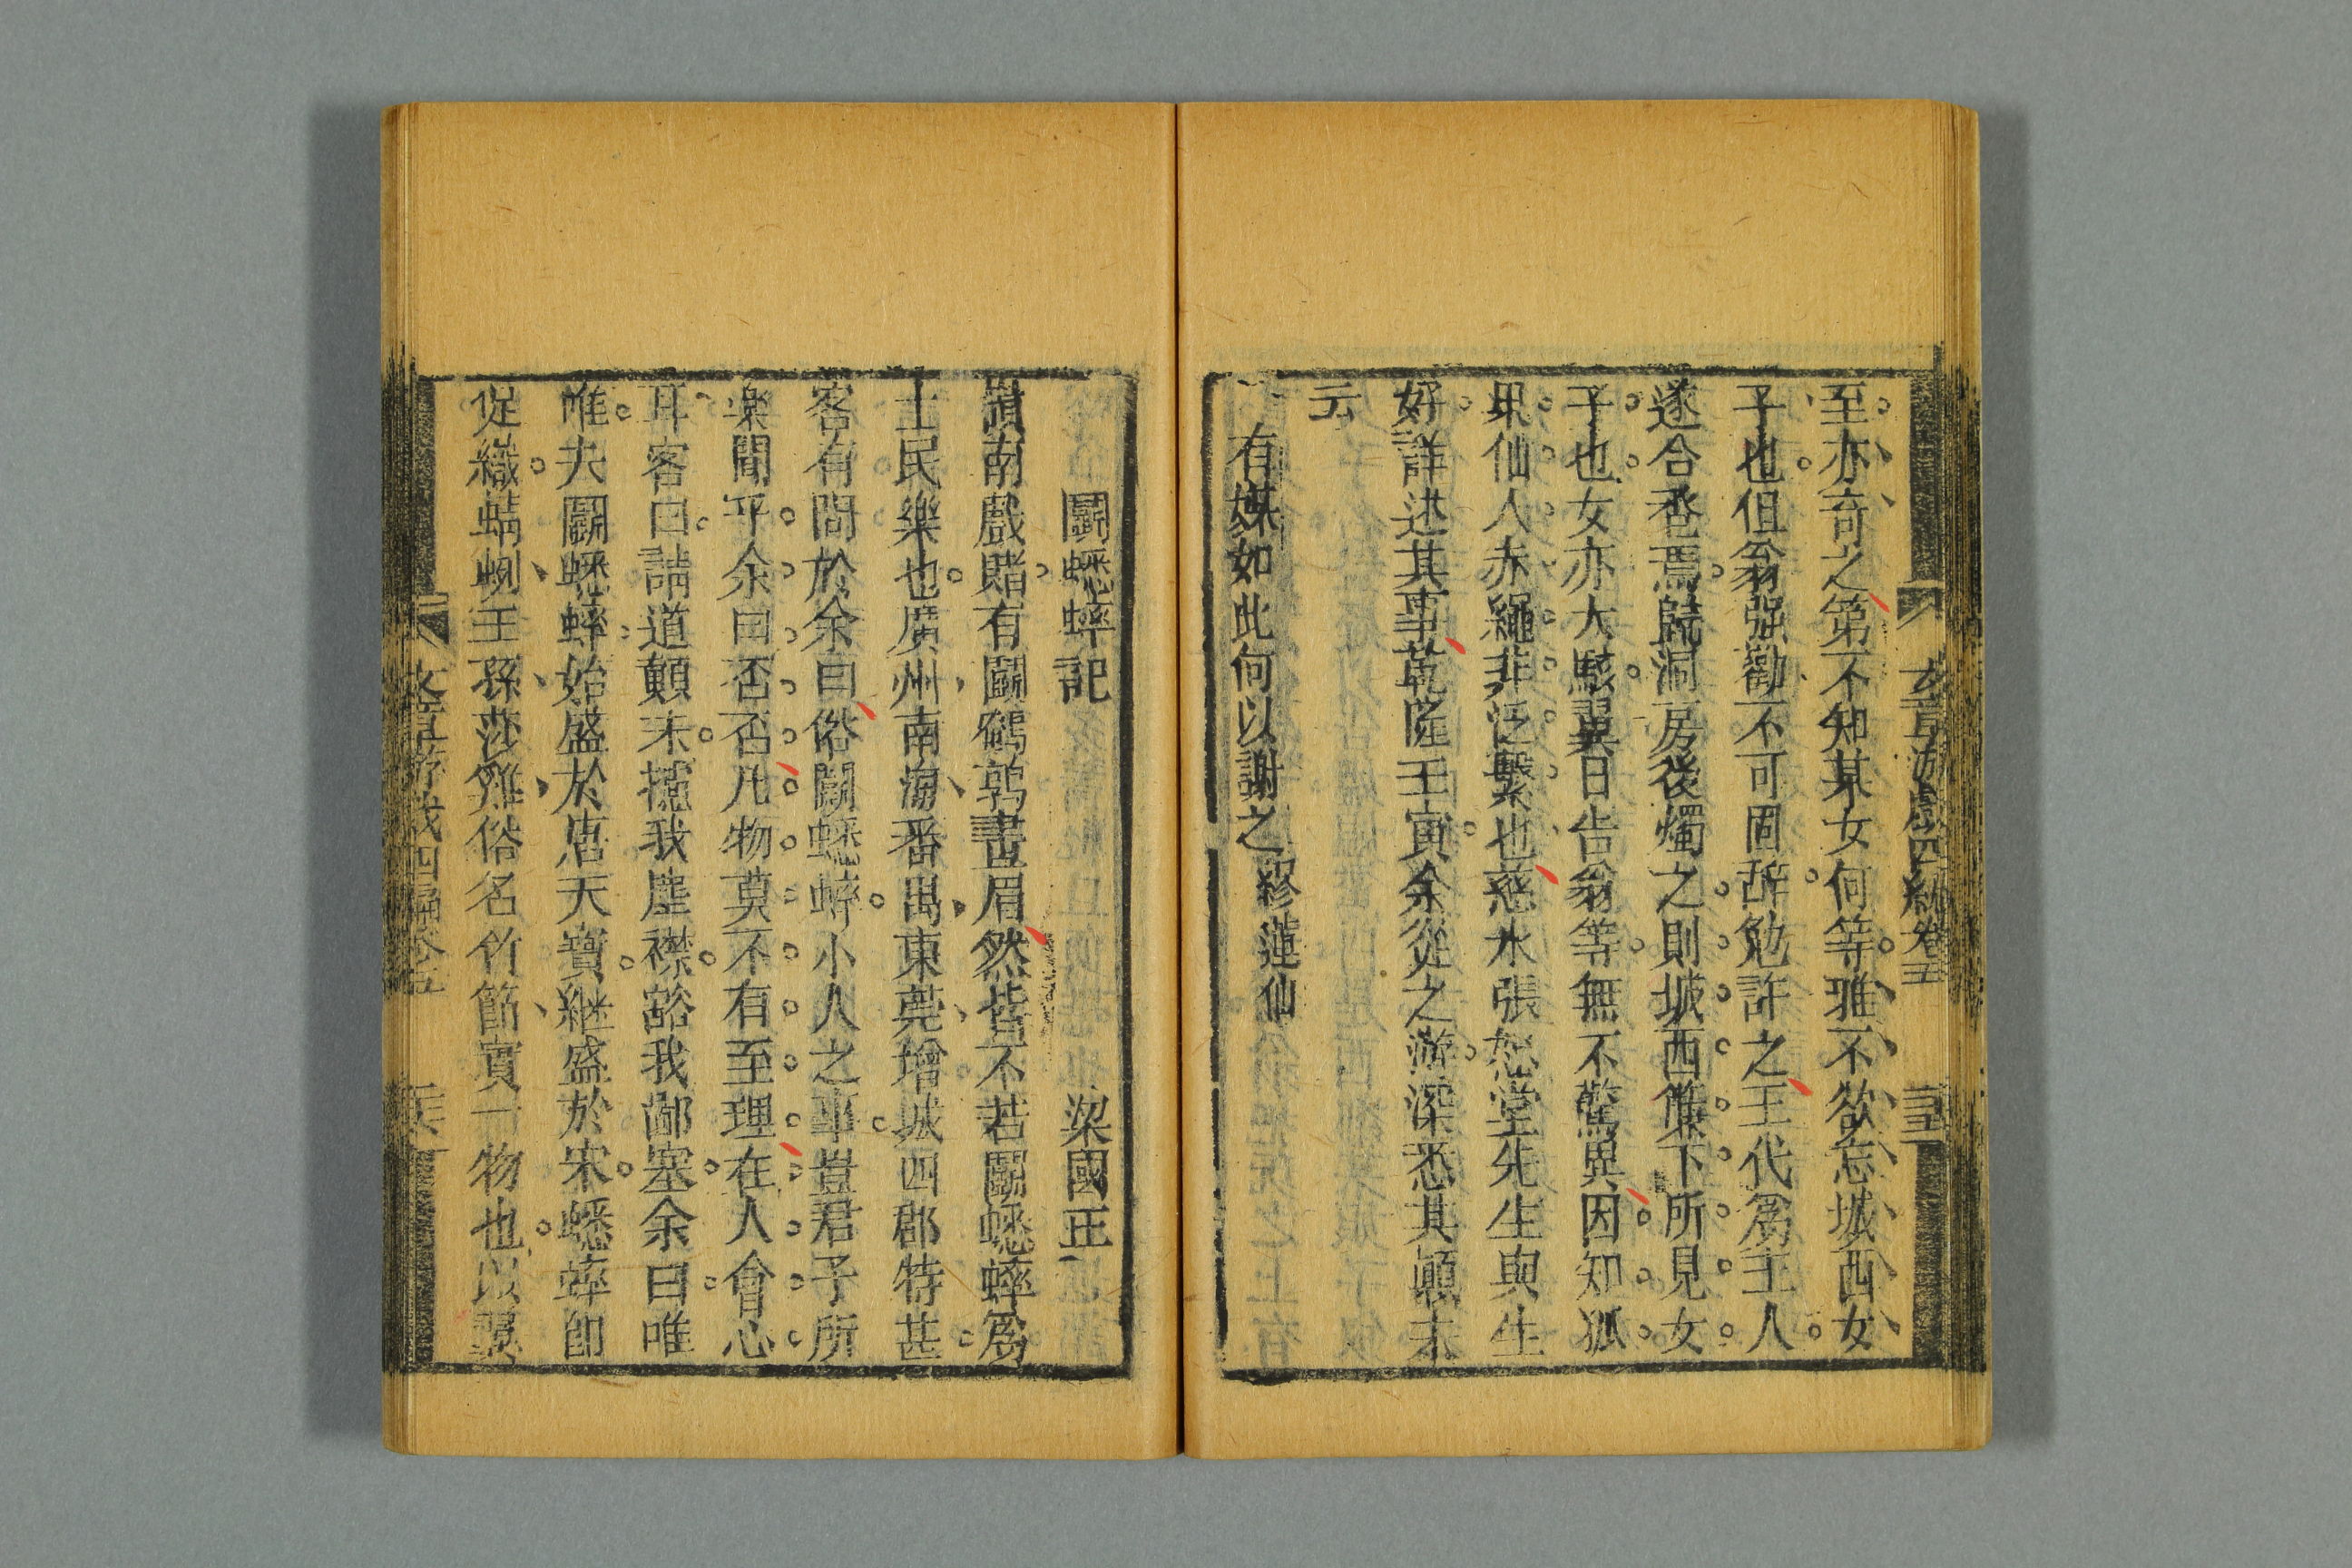 文章游戲四編卷五
至亦奇之第不知某女何等雅不欲忘城西女
子也但翁强勸不可固辞勉許之王代爲主人
遂合卺焉歸洞房後燭之則城西籬下所見女
子也女亦大駭翼日告翁等無不驚異因知狐
果仙人赤繩非泛繫也慈水張恕堂先生與生
好詳述其事乾隆壬寅余從之游深悉其顚末
云
有媒如此何以謝之 繆蓮仙
鬬蟋蟀記 梁國正
嶺南戲賭有鬬鵪鶉畫眉然皆不若鬬蟋蟀爲
士民樂也廣州南海番禺東莞增城四郡特甚
客有問於余曰俗鬬蟋蟀小人之事豈君子所
樂聞乎余曰否否凡物莫不有至理在人會心
耳客曰請道顛末攄我塵襟豁我鄙塞余曰唯
唯夫鬬蟋蟀始盛於唐天寶継盛於宋蟋蟀卽
促織蜻蛚王孫莎雞俗名竹節實一物也以翼
文章游戲四編卷五